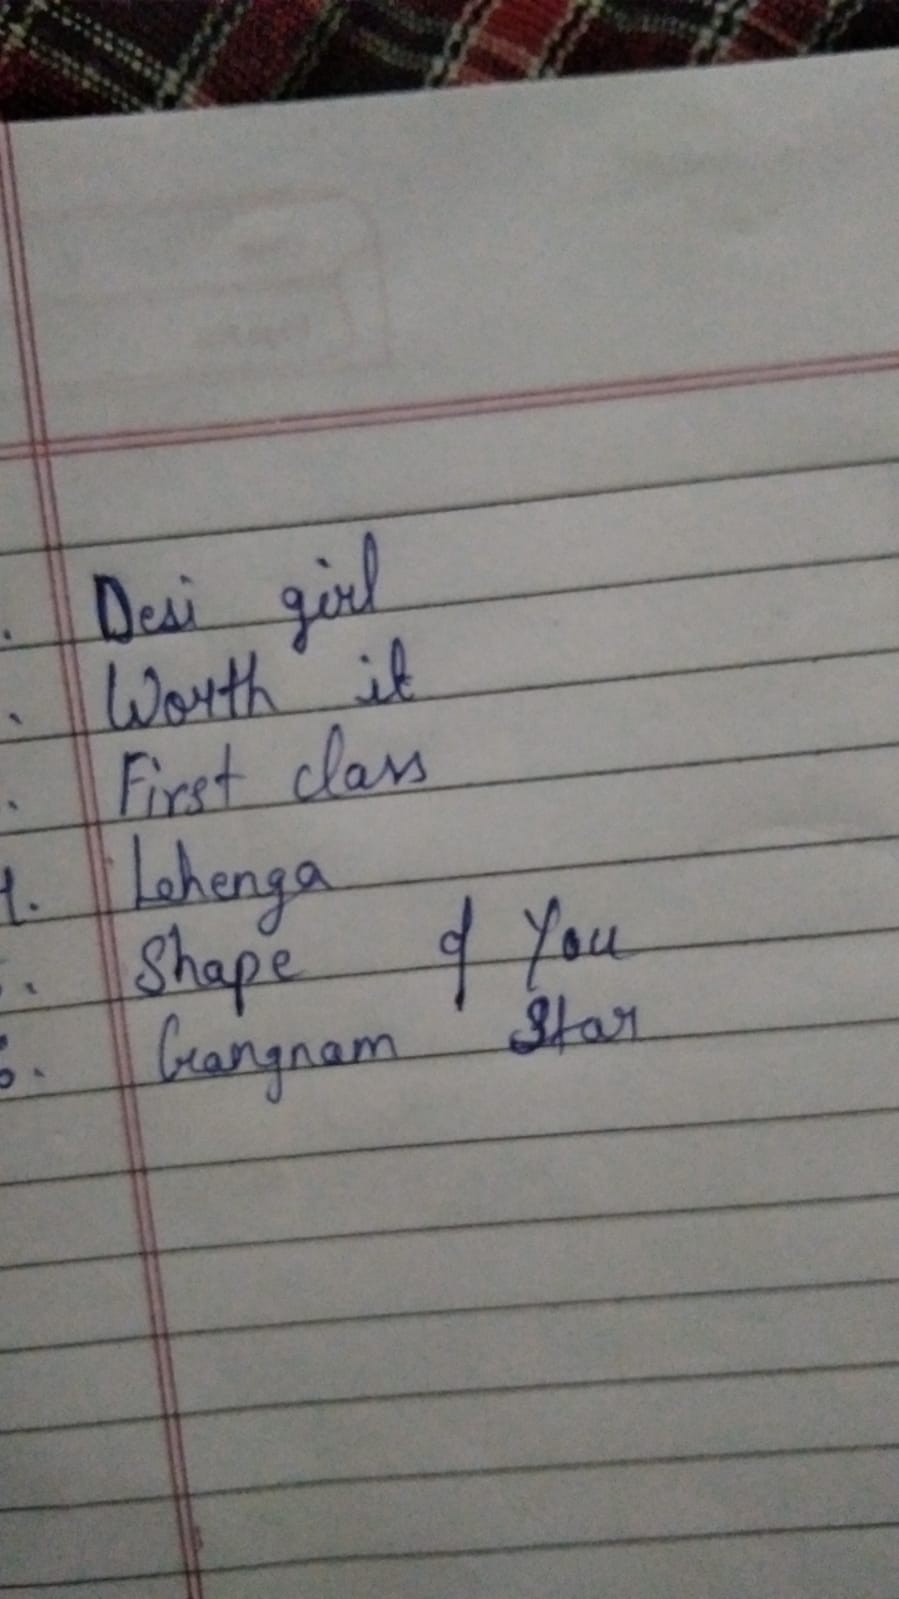 . Desi girl
. Worth it
. First class
4. Lehenga
5. Shape of You
6. Gangnam Star